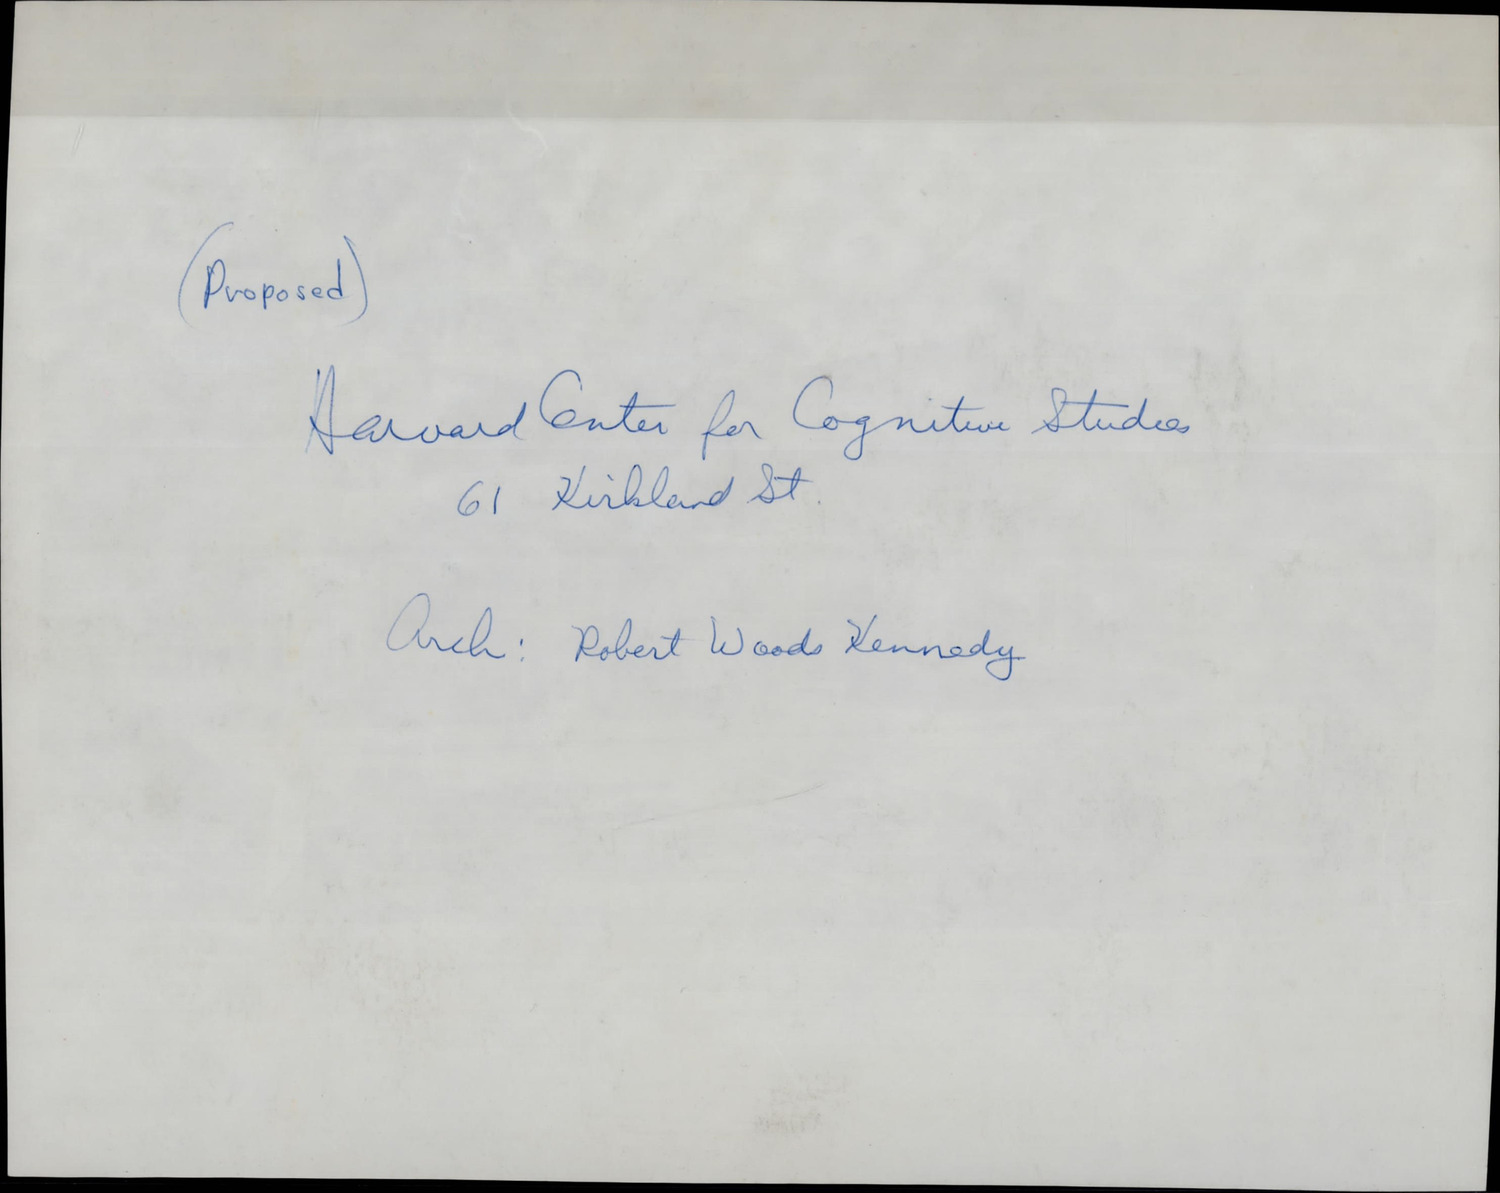 (Proposed)
Harvard Center for Cognitive Studies
61 Kirkland St.
Arch: Robert Woods Kennedy